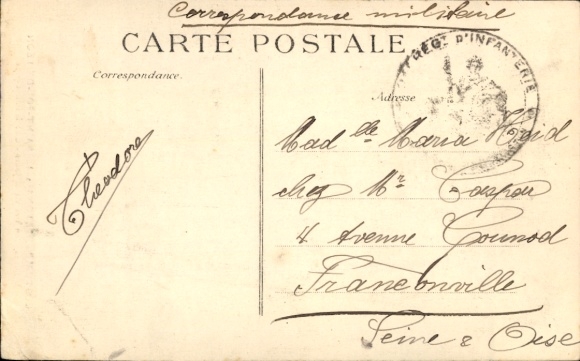 Correspondance militaire
CARTE POSTALE
Correspondance.
Adresse
REGT D'INFANTERIE
Theodore
Mad elle Maria Heid
chez Mr Caspar
4 Avenue Gounod
Franconville
Seine & Oise